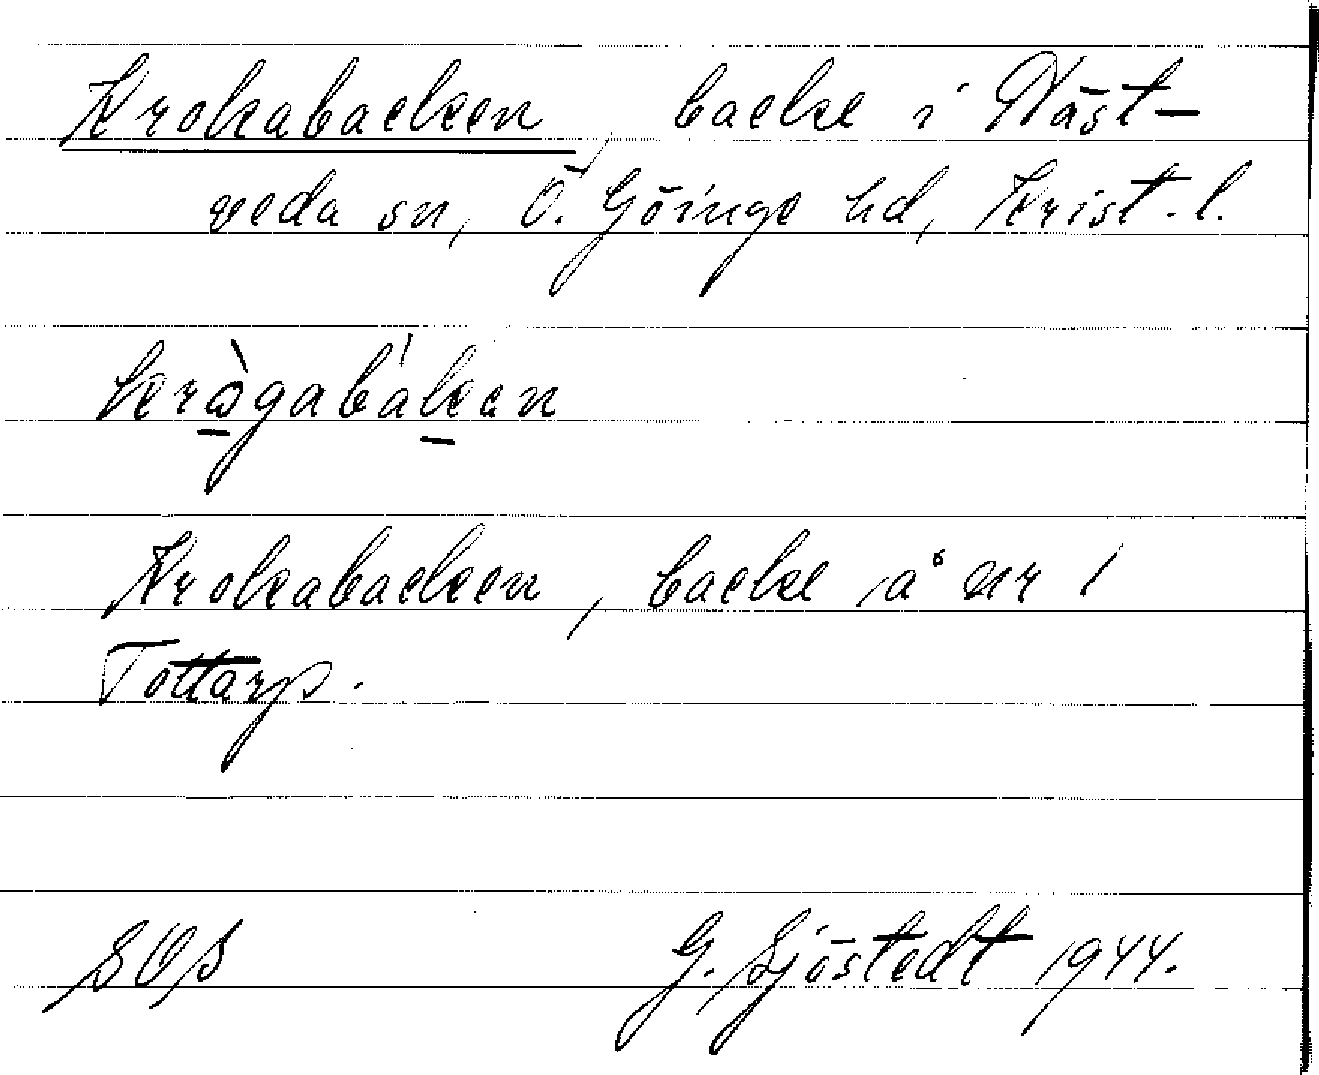 Krokabacken, backe i Näst-
veda sn, Ö. Göinge hd, Krist. l.
krògabákan
Krokabacken, backe å nr 1
Tottarp.
SOS G. Sjöstedt 1944.